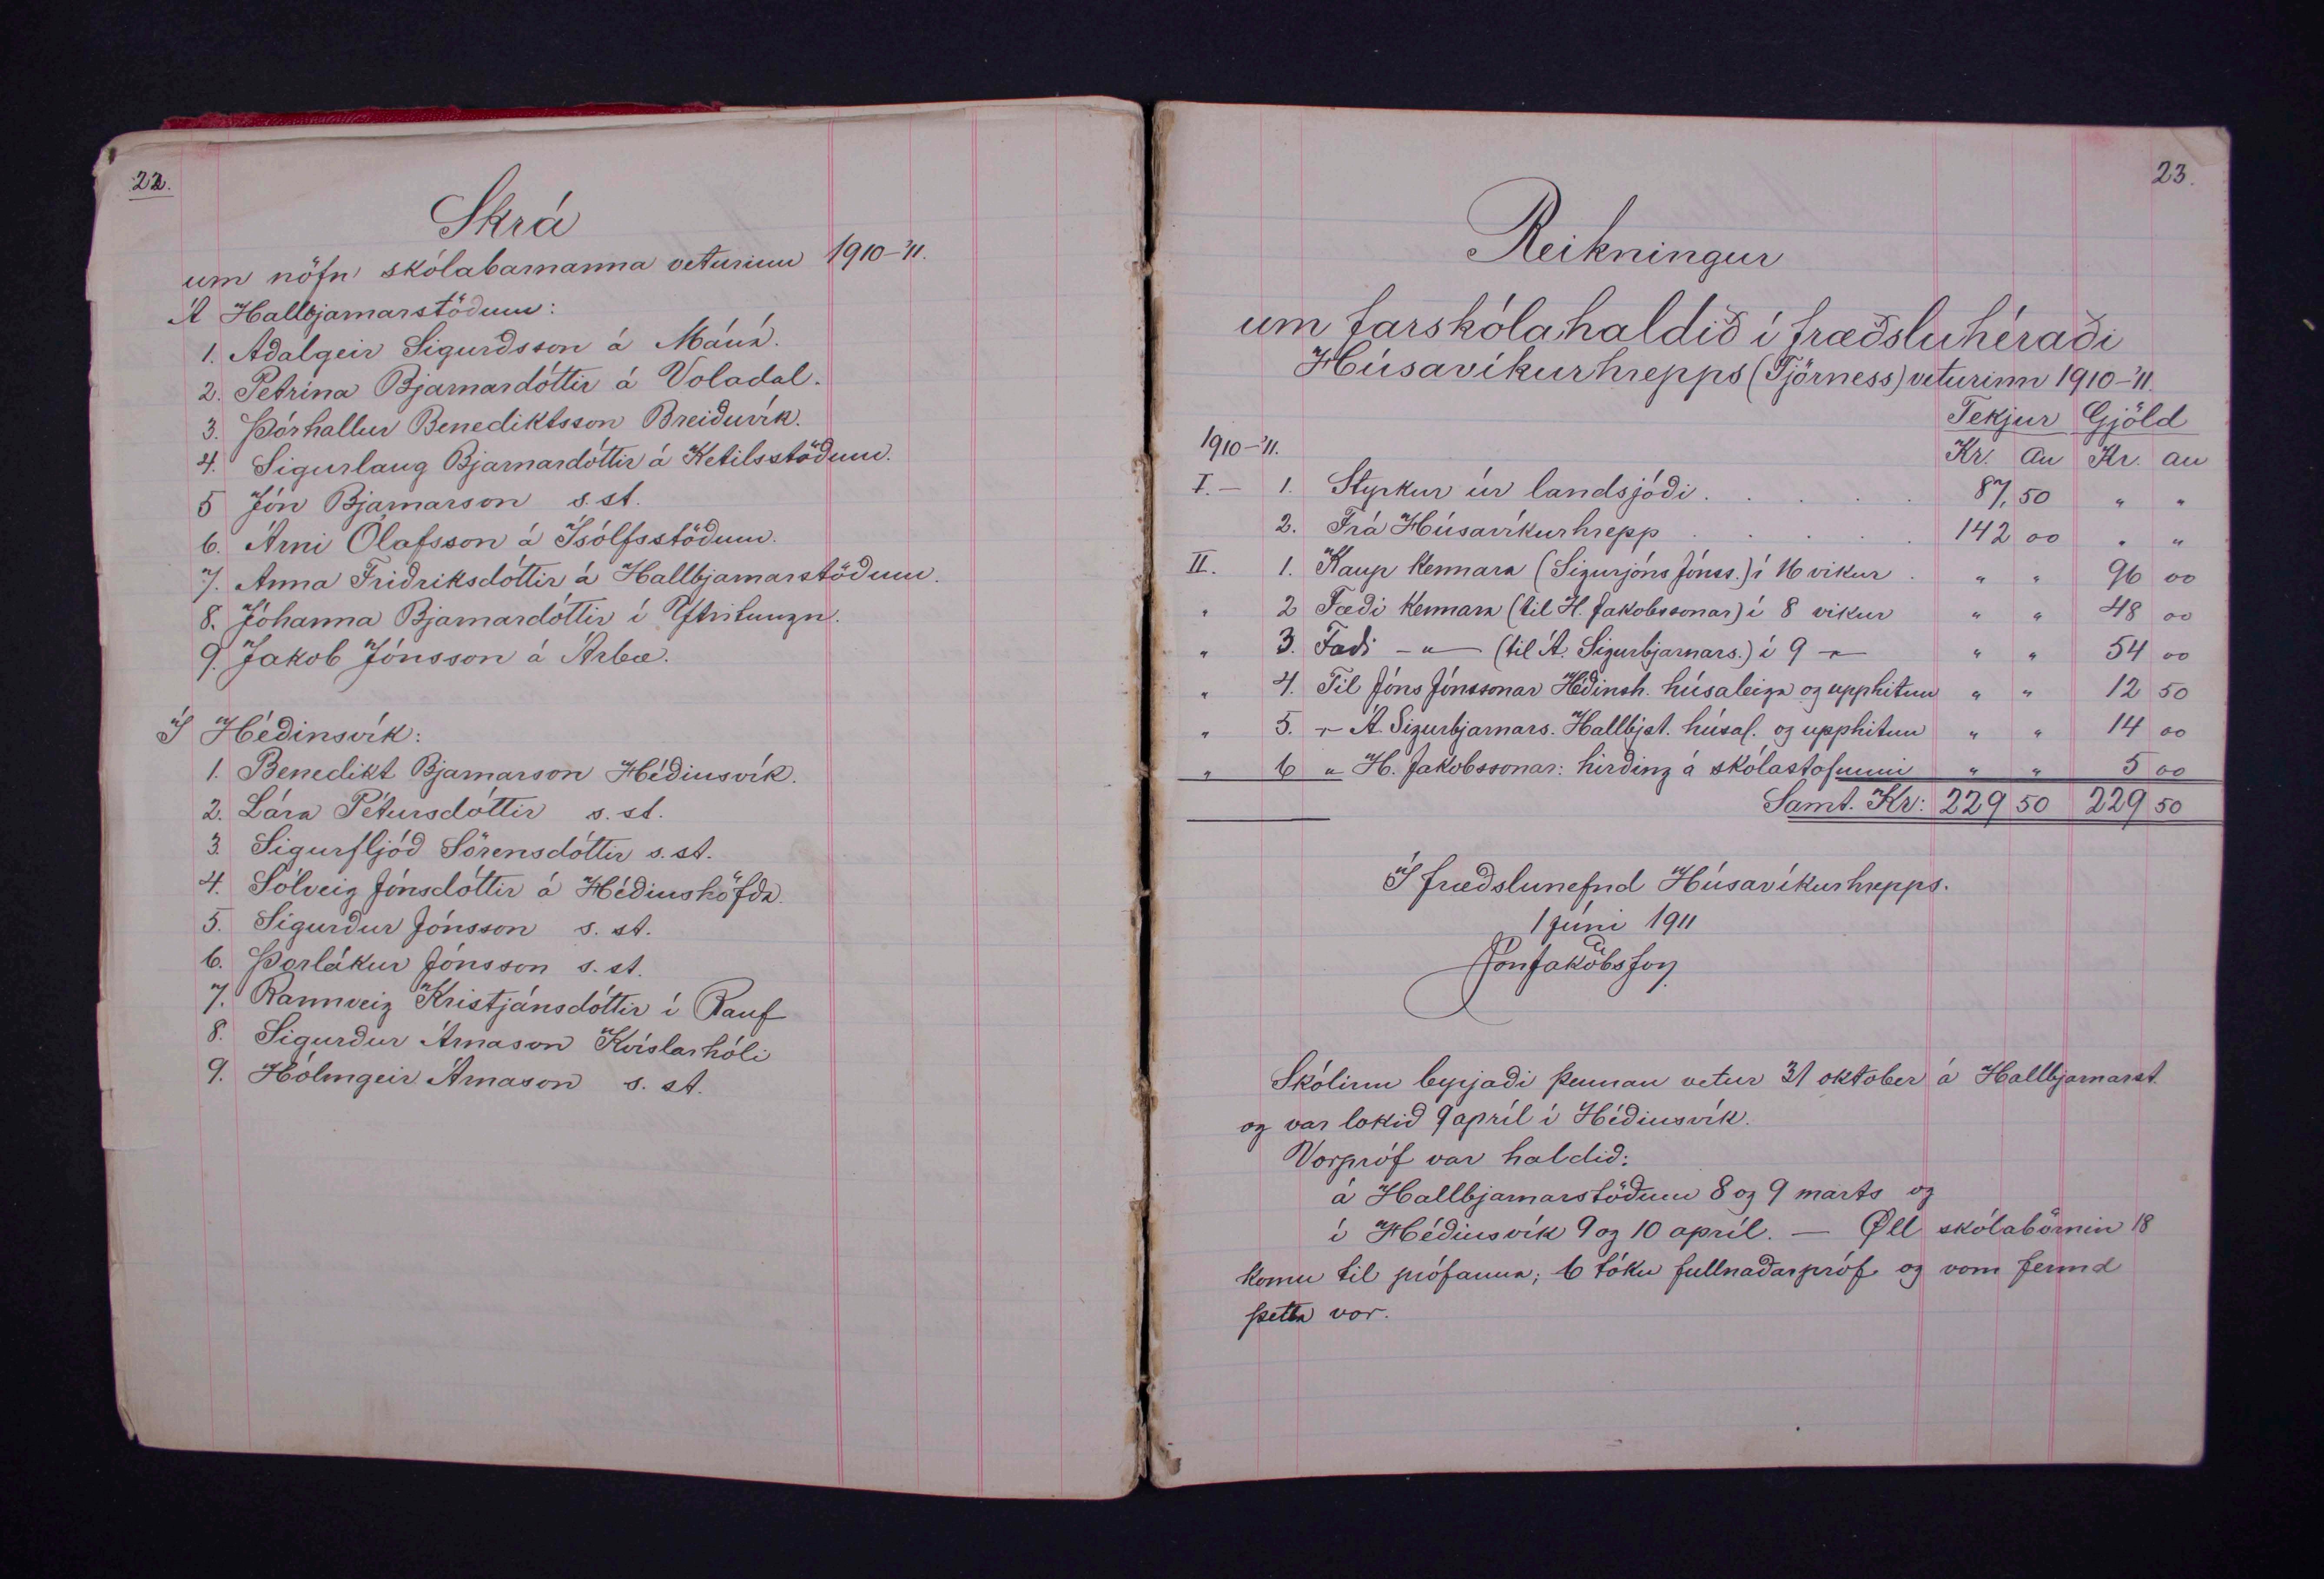 22.
Skrá
um nöfn skólabarnanna veturinn 1910-'11.
Á Hallbjarnarstöðum:
1. Aðalgeir Sigurðsson á Máná.
2. Petrína Bjarnardóttir á Voladal.
3. Þórhallur Benediktsson Breiðuvík.
4. Sigurlaug Bjarnardóttir á Ketilsstöðum.
5 Jón Bjarnarson s.st.
6. Árni Ólafsson á Ísólfsstöðum.
7. Anna Friðriksdóttir á Hallbjarnarstöðum.
8. Jóhanna Bjarnardóttir í Ytritungu.
9. Jakob Jónsson á Árbæ.
Í Héðinsvík:
1. Benedikt Bjarnarson Héðinsvík.
2. Lára Pétursdóttir s.st.
3. Sigurfljóð Sörensdóttir s.st.
4. Sólveig Jónsdóttir á Héðinshöfða.
5. Sigurður Jónsson s. st.
6. Þorlákur Jónsson s.st.
7. Rannveig Kristjánsdóttir í Rauf
8. Sigurður Árnason Kvíslarhóli
9. Hólmgeir Árnason s. st.
23.
Reikningur
um farskólahaldið í fræðsluhéraði
Húsavíkurhrepps (Tjörness) veturinn 1910-'11.
Tekjur Gjöld
1910-'11. Kr. au Kr. au
I. - 1. Styrkur úr landsjóði . . . . . 87,50 " "
2. Frá Húsavíkurhrepp . . . . . 142 00 " "
II. 1. Kaup kennara (Sigurjóns Jónss.) í 16 vikur . " " 96 00
" 2 Fæði kennara (til H. Jakobssonar) í 8 vikur " " 48 00
" 3. Fæði - " - (til Á. Sigurbjarnars.) í 9 - " - " " 54 00
" 4. Til Jóns Jónssonar Héðinsh. húsaleiga og upphitun " " 12 50
" 5. - " - Á. Sigurbjarnars. Hallbjst. húsal. og upphitun " " 14 00
" 6 " H. Jakobssonar: hirðing á skólastofunni " " 5 00
Samt. Kr: 229 50 229 50
Í fræðslunefnd Húsavíkurhrepps.
1 júni 1911
Jón Jakobsson
Skólinn byrjaði þennan vetur 31 oktober á Hallbjarnarst.
og var lokið 9 apríl í Héðinsvík.
Vorpróf var haldið:
á Hallbjarnarstöðum 8 og 9 marts og
í Héðinsvík 9 og 10 apríl. — Øll skólabörnin 18
komu til prófanna; 6 tóku fullnaðarpróf og voru fermd
þetta vor.